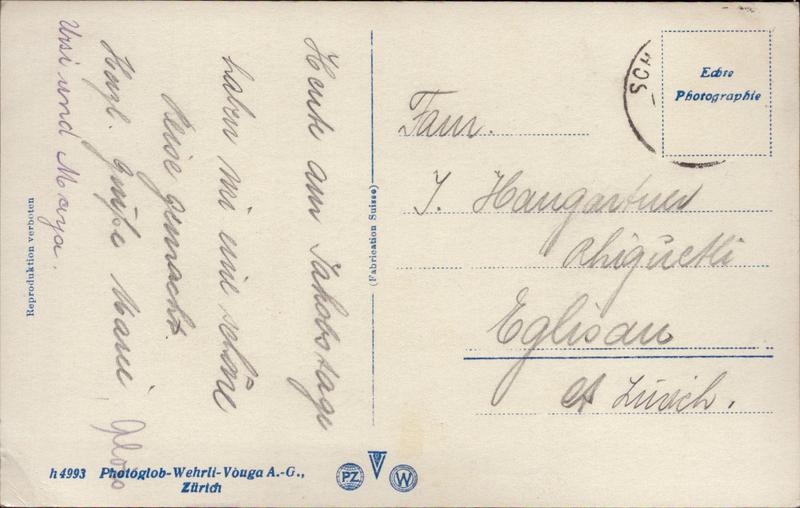 Heute am Jakobstage
haben wir eine schöne
Reise gemacht.
Herzl. Grüße Marei,
Ursi und Maya.
Reproduktion verboten
h4993 Photoglob-Wehrli-Vouga A.-G.,
Zürich
PZ
W
(Fabrication Suisse)
SCH
Echte
Photographie
Fam.
J. Hangartner
Rhigüetli
Eglisau
Kt Zürich.